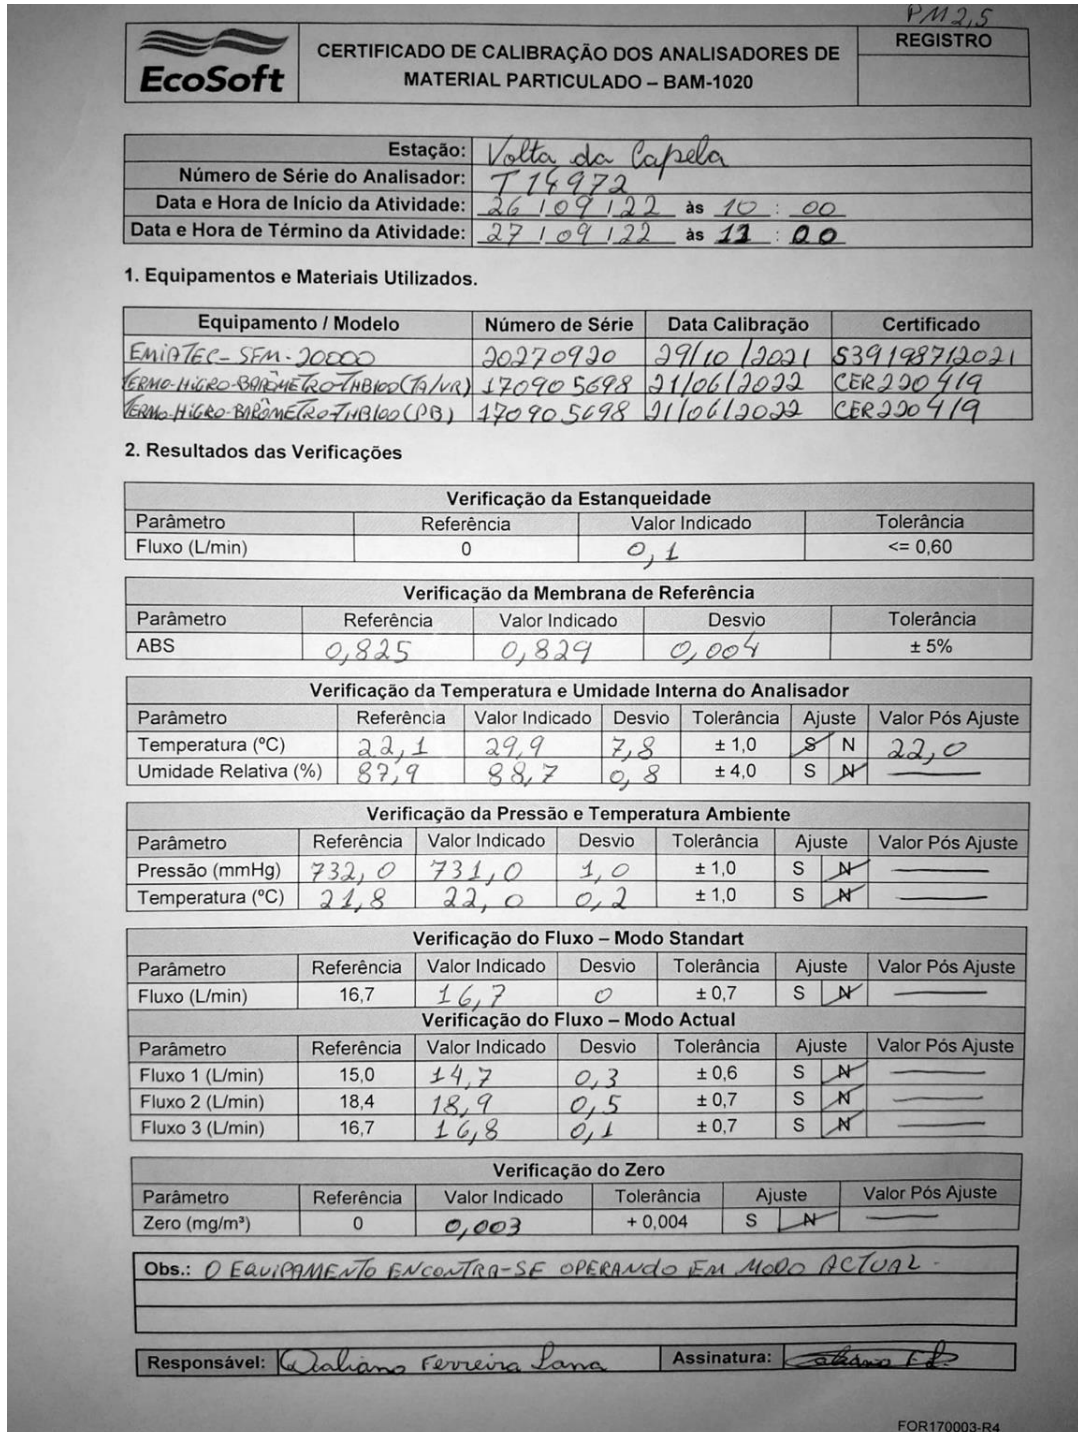 PM2,5
EcoSoft
CERTIFICADO DE CALIBRAÇÃO DOS ANALISADORES DE
MATERIAL PARTICULADO – BAM-1020
REGISTRO
Estação: Volta da Capela
Número de Série do Analisador: T14972
Data e Hora de Início da Atividade: 26/09/22 às 10:00
Data e Hora de Término da Atividade: 27/09/22 às 11:00
1. Equipamentos e Materiais Utilizados.
Equipamento / Modelo Número de Série Data Calibração Certificado
SFM-20000 20270920 29/10/2021 2021
TERMO-HIGRO-BARÔMETRO-THB100(TA/UR) 170905698 21/06/2022 CER220419
TERMO-HIGRO-BARÔMETRO-THB100(PB) 170905698 21/06/2022 CER220419
2. Resultados das Verificações
Verificação da Estanqueidade
Parâmetro Referência Valor Indicado Tolerância
Fluxo (L/min) 0 0,1 <= 0,60
Verificação da Membrana de Referência
Parâmetro Referência Valor Indicado Desvio Tolerância
ABS 0,825 0,829 0,004 ± 5%
Verificação da Temperatura e Umidade Interna do Analisador
Parâmetro Referência Valor Indicado Desvio Tolerância Ajuste Valor Pós Ajuste
Temperatura (ºC) 22,1 29,9 7,8 ± 1,0 S N 22,0
Umidade Relativa (%) 87,9 88,7 0,8 ± 4,0 S N
Verificação da Pressão e Temperatura Ambiente
Parâmetro Referência Valor Indicado Desvio Tolerância Ajuste Valor Pós Ajuste
Pressão (mmHg) 732,0 731,0 1,0 ± 1,0 S N
Temperatura (ºC) 21,8 22,0 0,2 ± 1,0 S N
Verificação do Fluxo – Modo Standart
Parâmetro Referência Valor Indicado Desvio Tolerância Ajuste Valor Pós Ajuste
Fluxo (L/min) 16,7 16,7 0 ± 0,7 S N
Verificação do Fluxo – Modo Actual
Parâmetro Referência Valor Indicado Desvio Tolerância Ajuste Valor Pós Ajuste
Fluxo 1 (L/min) 15,0 14,7 0,3 ± 0,6 S N
Fluxo 2 (L/min) 18,4 18,9 0,5 ± 0,7 S N
Fluxo 3 (L/min) 16,7 16,8 0,1 ± 0,7 S N
Verificação do Zero
Parâmetro Referência Valor Indicado Tolerância Ajuste Valor Pós Ajuste
Zero (mg/m³) 0 0,003 + 0,004 S N
Obs.: O EQUIPAMENTO ENCONTRA-SE OPERANDO EM MODO ACTUAL.
Responsável: Ferreira Lana Assinatura:
FOR170003-R4